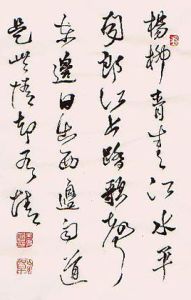 楊柳青青江水平
聞郎江上踏歌聲
東邊日出西邊雨道
是無情卻有情